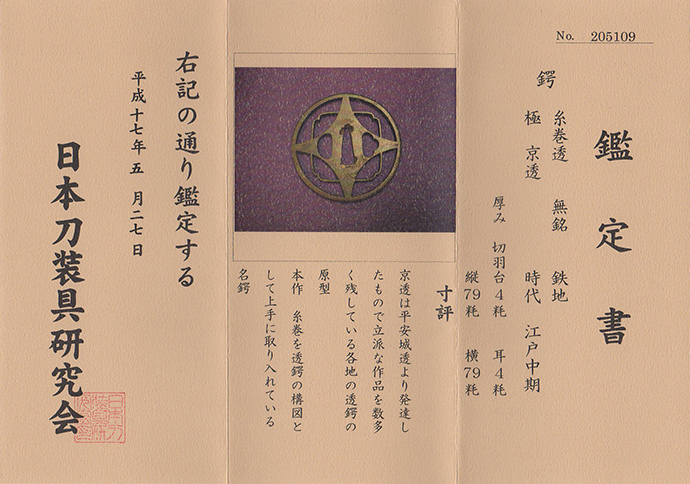 No. 205109
鑑定書
鍔 糸巻透 無銘 鉄地
極 京透 時代 江戸中期
厚み 切羽台4粍 耳4粍
縦79粍 横79粍
寸評
京透は平安城透より発達し
たもので立派な作品を数多
く残している各地の透鍔の
原型
本作 糸巻を透鍔の構図と
して上手に取り入れている
名鍔
右記の通り鑑定する
平成十七年五月二七日
日本刀装具研究会